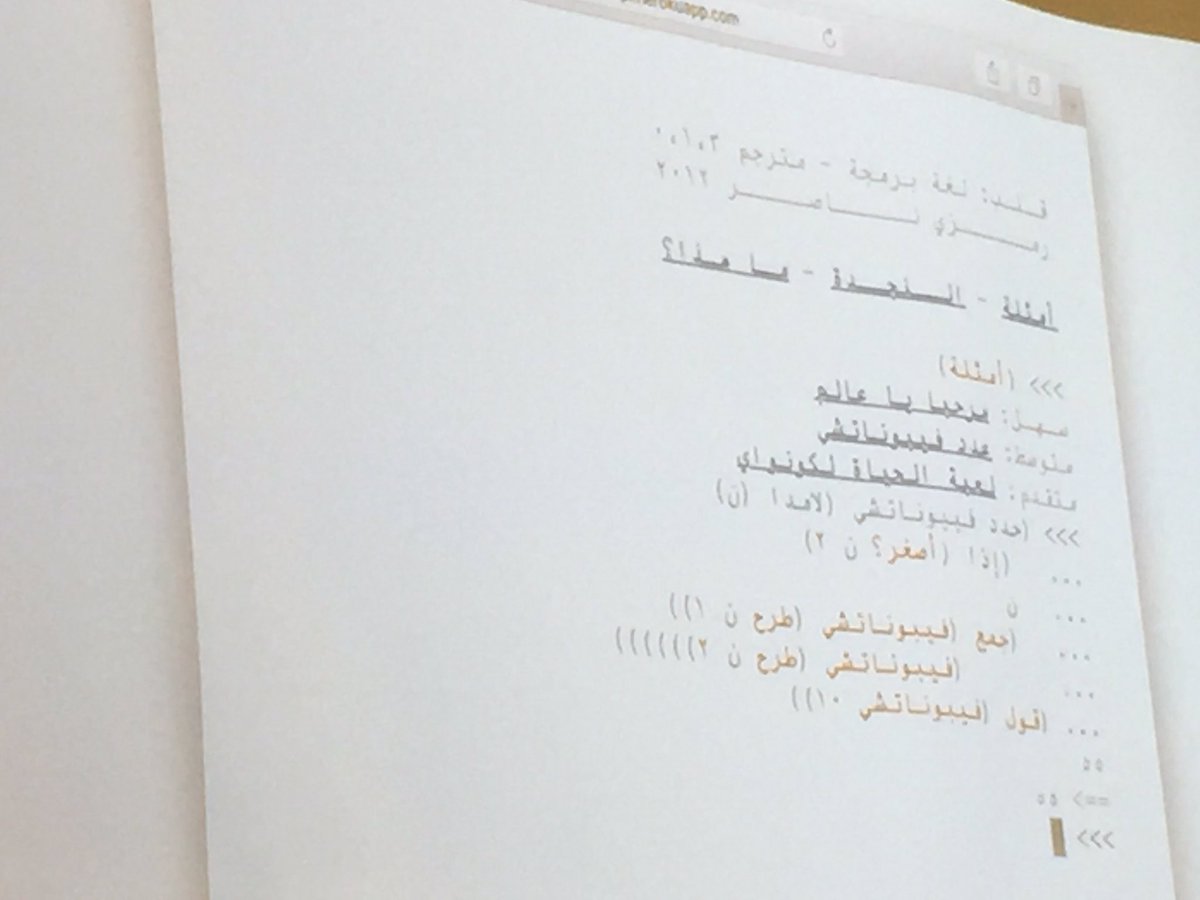 herokuapp.com
قلب: لغة برمجة - مترجم ٠،١،٣
رمـــزي نـــاصـــر ٢٠١٢
أمثلة - الـنـجـدة - مـا هـذا؟
>>> (أمثلة)
سهل: مرحبا يا عالم
متوسط: عدد فيبوناتشي
متقدم: لعبة الحياة لكونواي
>>> (حدد فيبوناتشي (لامدا (ن)
... (إذا (أصغر؟ ن ٢)
... ن
... (جمع (فيبوناتشي (طرح ن ١))
... (فيبوناتشي (طرح ن ٢))))))
... (قول (فيبوناتشي ١٠))
٥٥
==> ٥٥
>>>